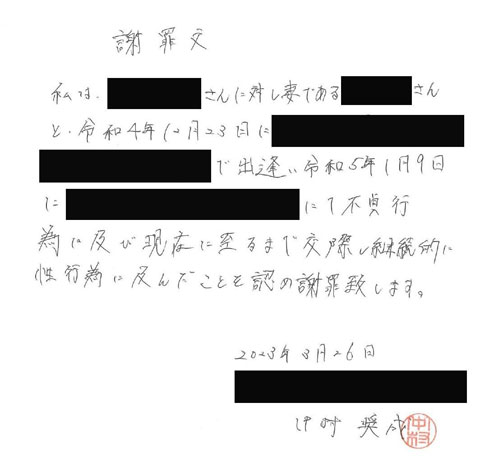 謝罪文
私は、さんに対し妻であるさん
と、令和4年12月23日に
で出逢い令和5年1月9日
ににて不貞行
為に及び現在に至るまで交際し継続的に
性行為に及んだことを認め謝罪致します。
2023年3月26日
中村 奨成
中村